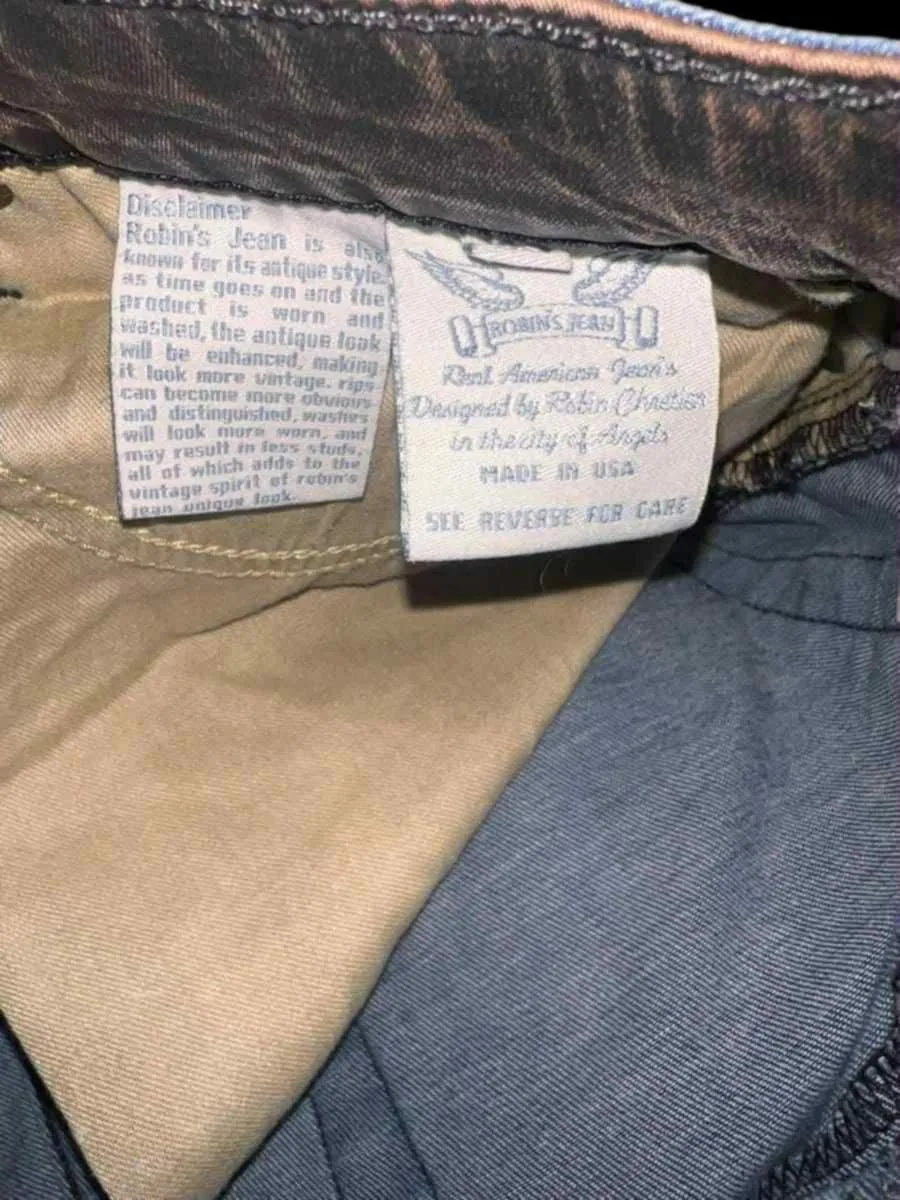 Disclaimer
Robin's Jean is also
known for its antique style,
as time goes on and the
product is worn and
washed, the antique look
will be enhanced, making
it look more vintage. rips
can become more obvious
and distinguished, washes
will look more worn, and
may result in less studs.
all of which adds to the
vintage spirit of robin's
jean unique look.
ROBIN'S JEAN
Real American Jean's
Designed by Robin Chretien
in the city of Angels
MADE IN USA
SEE REVERSE FOR CARE